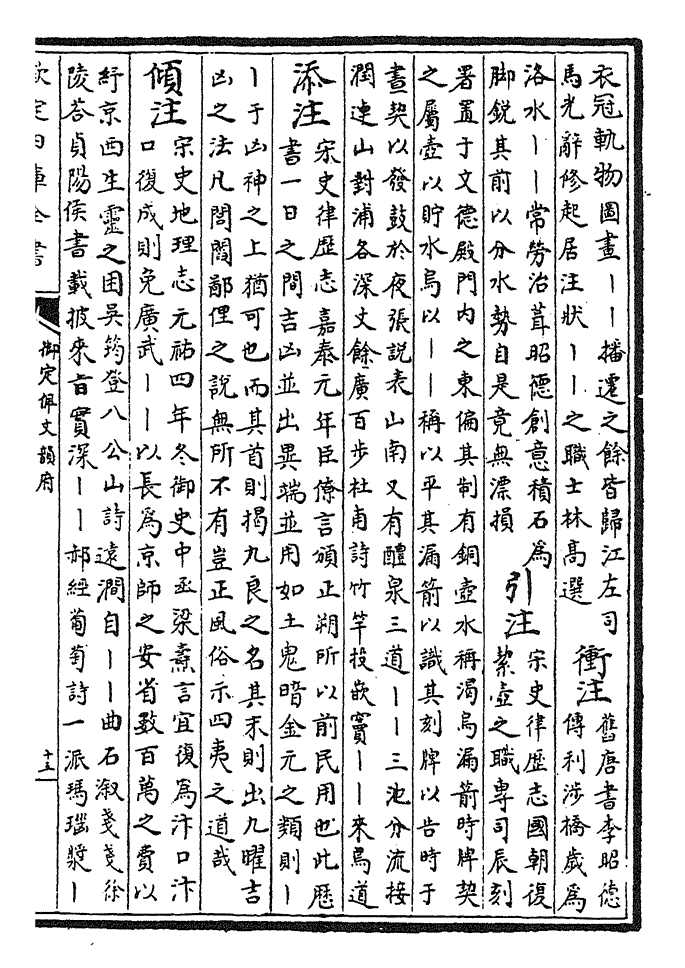 衣冠軌物圖畫丨丨播遷之餘皆歸江左司
馬光辭修起居注狀丨丨之職士林高選
衝注
舊唐書李昭德
傳利涉橋歲為
洛水丨丨常勞治葺昭德創意積石為
脚銳其前以分水勢自是竟無漂損
引注
宋史律歷志國朝復
挈壺之職專司辰刻
署置于文德殿門内之東偏其制有銅壺水稱渴烏漏箭時牌契
之屬壺以貯水烏以丨丨稱以平其漏箭以識其刻牌以告時于
晝契以發鼓於夜張說表山南又有醴泉三道丨丨三池分流接
潤連山對浦各深丈餘廣百步杜甫詩竹竿投嵌竇丨丨來鳥道
添注
宋史律歷志嘉泰元年臣僚言頒正朔所以前民用也此歷
書一日之間吉凶並出異端並用如土鬼暗金元之類則丨
丨于凶神之上猶可也而其首則揭九良之名其末則出九曜吉
凶之法凡閭閻鄙俚之說無所不有豈正風俗示四夷之道哉
傾注
宋史地理志元祐四年冬御史中丞梁燾言宜復為汴口汴
口復成則免廣武丨丨以長為京師之安省數百萬之費以
紓京西生靈之困吳筠登八公山詩遠澗自丨丨曲石溆戔戔徐
陵荅貞陽侯書載披來旨實深丨丨郝經葡萄詩一派瑪瑙漿丨
欽定四庫全書
御定佩文韻府
十五